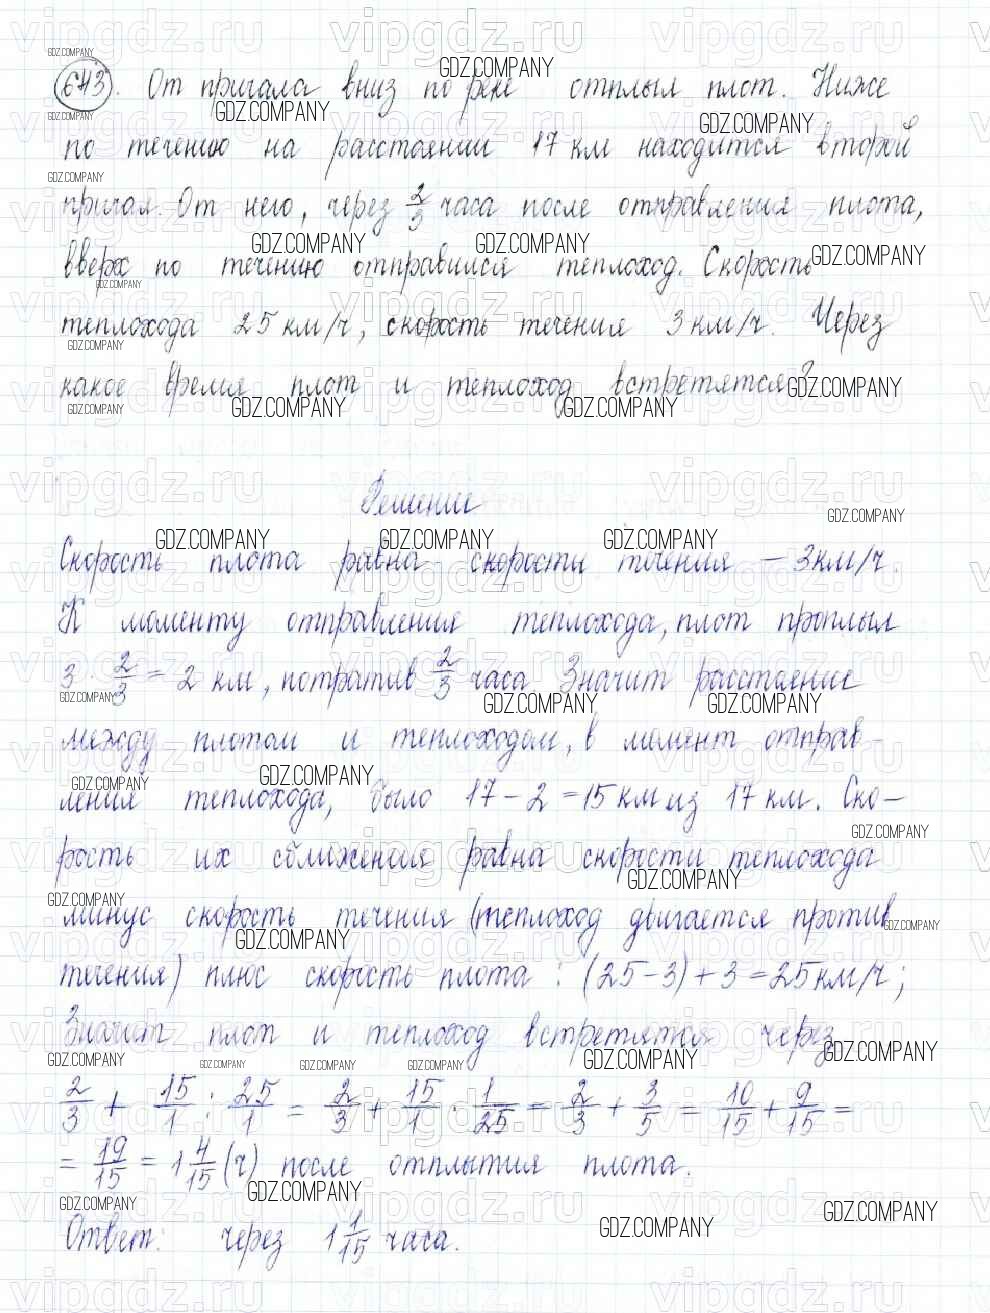 643. От причала вниз по реке отплыл плот. Ниже
по течению на расстоянии 17 км находится второй
причал. От него, через 2/3 часа после отправления плота,
вверх по течению отправился теплоход. Скорость
теплохода 25 км/ч, скорость течения 3 км/ч. Через
какое время плот и теплоход встретятся?
Решение
Скорость плота равна скорости течения – 3 км/ч.
К моменту отправления теплохода, плот проплыл
3 · 2/3 = 2 км, потратив 2/3 часа. Значит расстояние
между плотом и теплоходом, в момент отправ-
ления теплохода, было 17 - 2 = 15 км из 17 км. Ско-
рость их сближения равна скорости теплохода
минус скорость течения (теплоход двигается против
течения) плюс скорость плота: (25 - 3) + 3 = 25 км/ч;
Значит плот и теплоход встретятся через
2/3 + 15/1 : 25/1 = 2/3 + 15/1 · 1/25 = 2/3 + 3/5 = 10/15 + 9/15 =
= 19/15 = 1 4/15 (ч) после отплытия плота.
Ответ: через 1 1/15 часа.
vipgdz.ru
GDZ.COMPANY